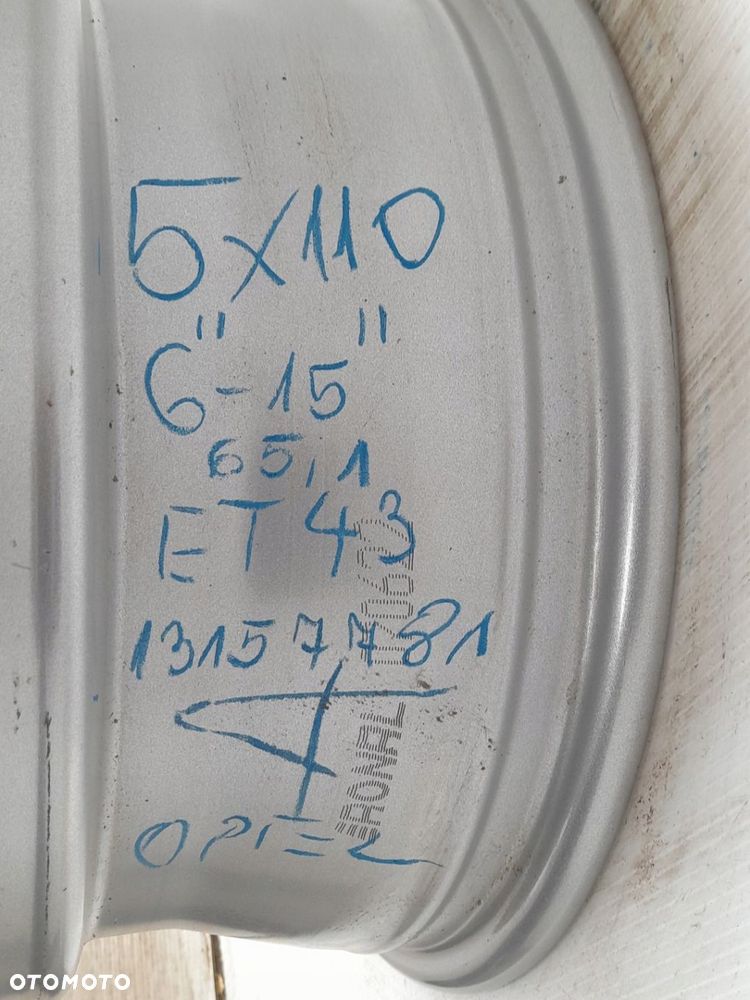 5x110
6"-15"
65,1
ET 43
13157781
4
OPEL
RONAL
OTOMOTO